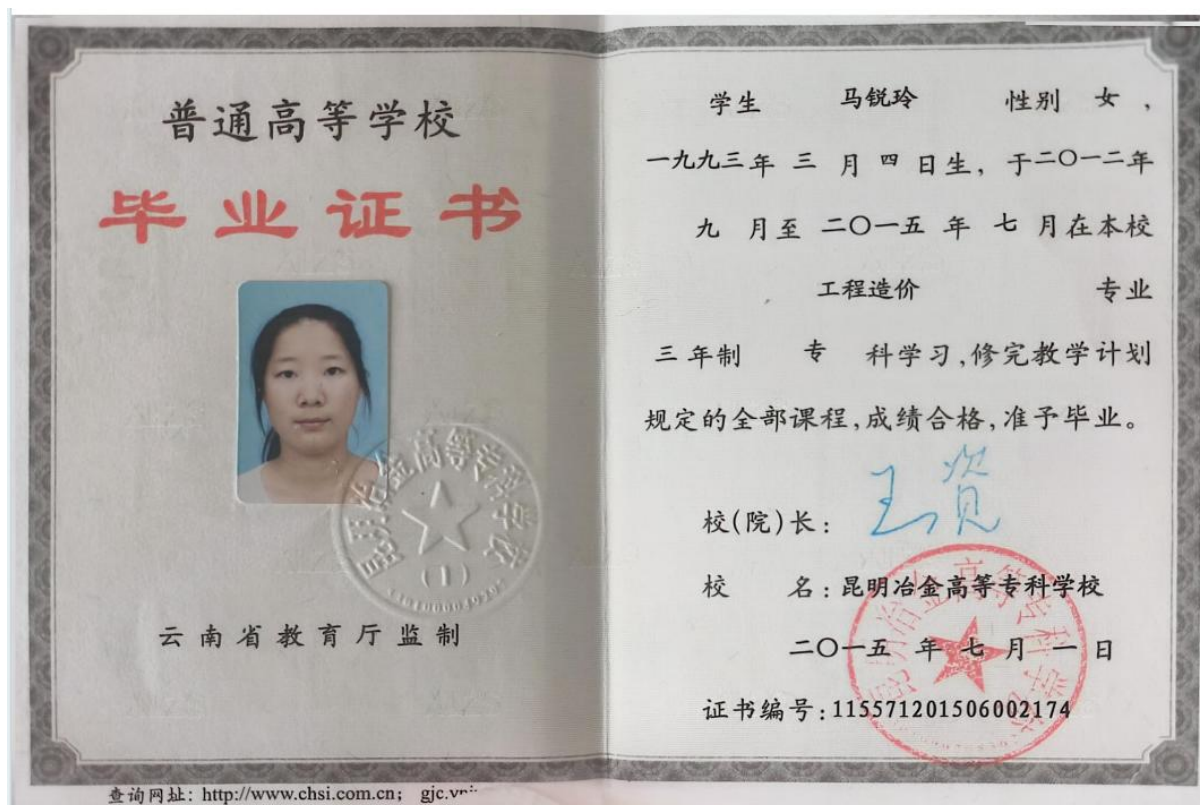 普通高等学校
毕业证书
昆明冶金高等专科学校
(1)
云南省教育厅监制
学生 马锐玲 性别 女，
一九九三年 三 月 四 日生，于二〇一二年
九 月至 二〇一五 年 七 月在本校
工程造价 专业
三 年制 专 科学习，修完教学计划
规定的全部课程，成绩合格，准予毕业。
校(院)长：王资
校 名：昆明冶金高等专科学校
昆明冶金高等专科学校
二〇一五 年 七 月 一 日
证书编号：115571201506002174
查询网址：http://www.chsi.com.cn；